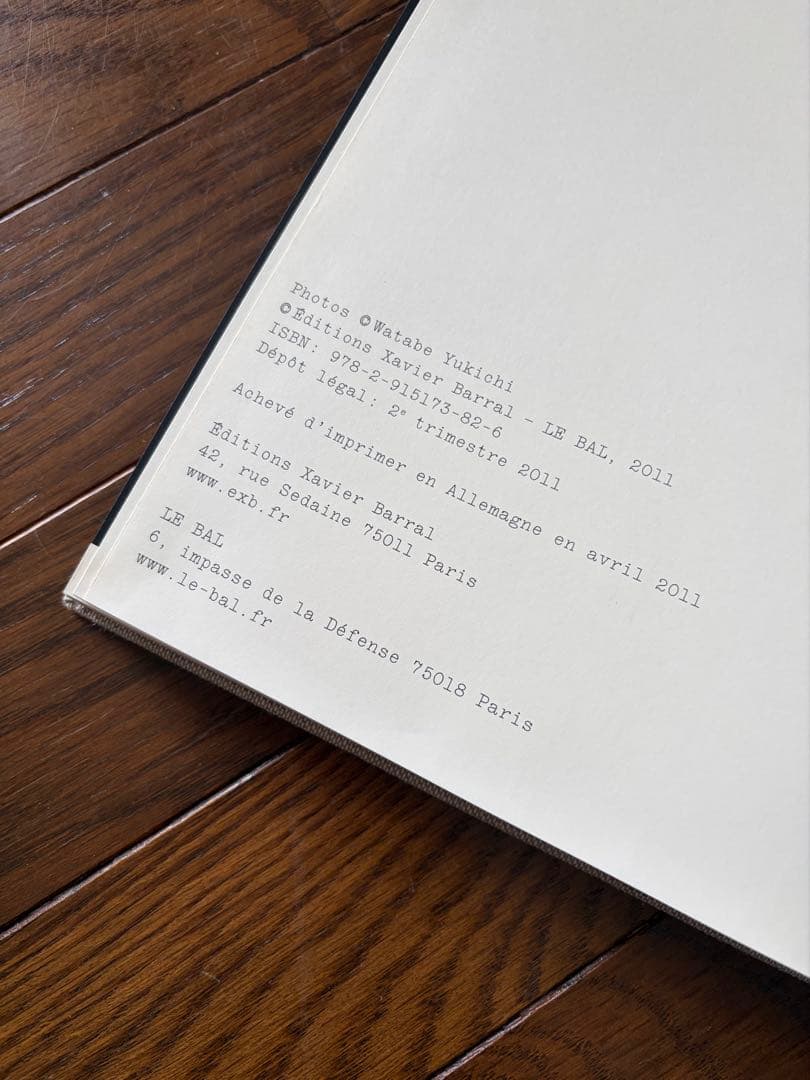 Photos ©Watabe Yukichi
©Éditions Xavier Barral – LE BAL, 2011
ISBN: 978-2-915173-82-6
Dépôt légal: 2e trimestre 2011
Achevé d'imprimer en Allemagne en avril 2011
Éditions Xavier Barral
42, rue Sedaine 75011 Paris
www.exb.fr
LE BAL
6, impasse de la Défense 75018 Paris
www.le-bal.fr